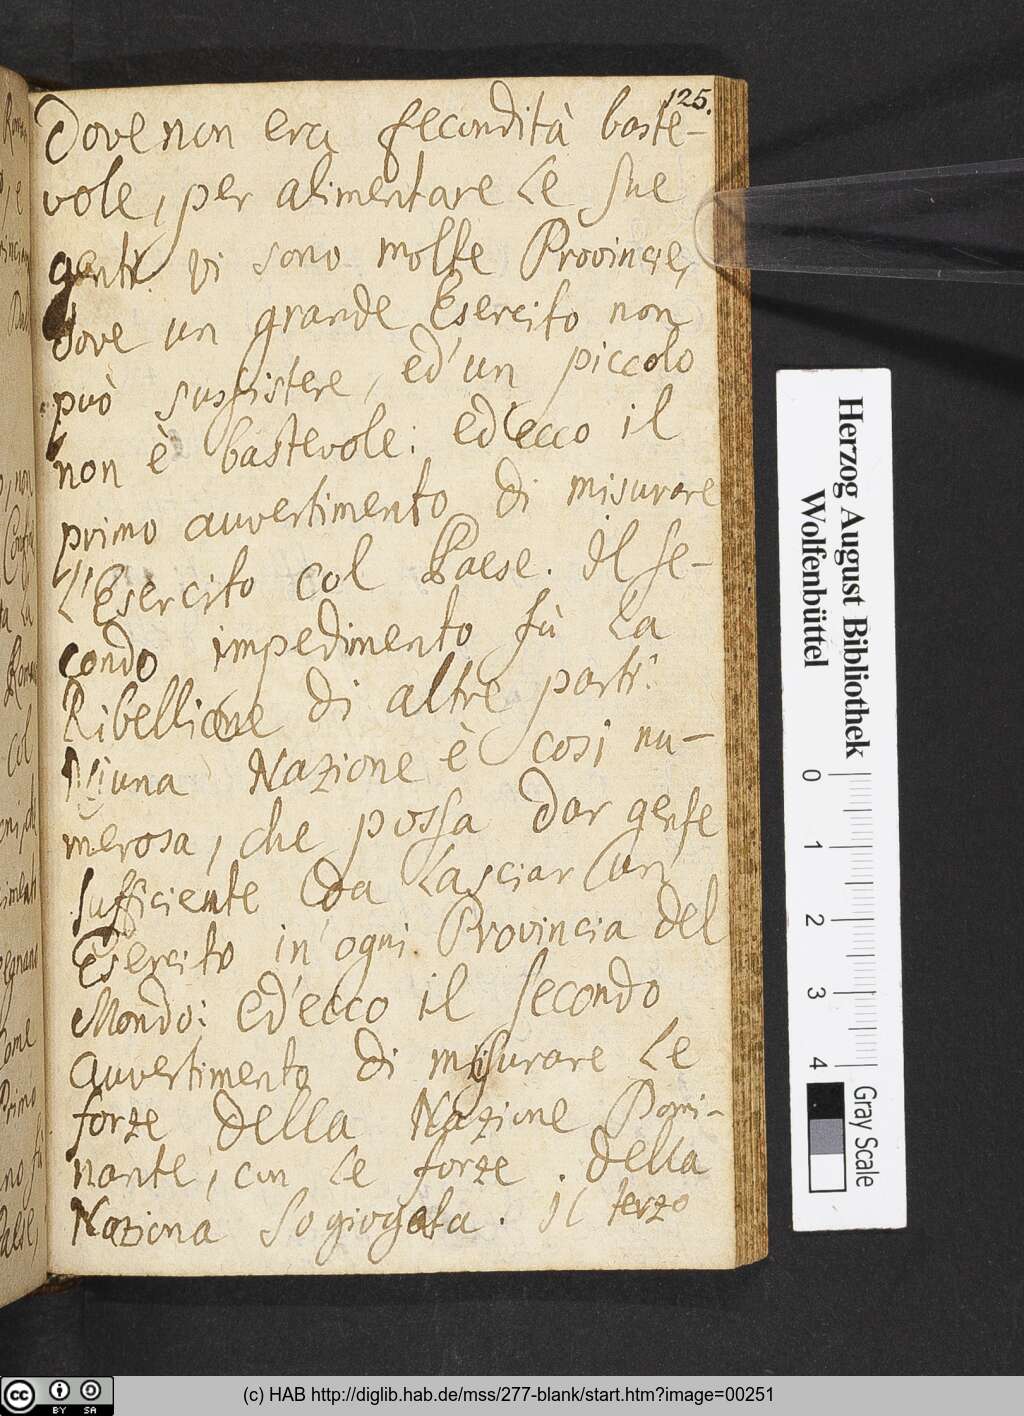 125.
Dove non era fecondità baste-
vole, per alimentare le sue
genti. vi sono molte Provincie,
dove un grande Esercito non
può sussistere, ed'un piccolo
non è bastevole: ed'ecco il
primo avvertimento di misurare
L'Esercito col Paese. Il se-
condo impedimento fù la
Ribellione di altre parti.
Niuna Nazione è così nu-
merosa, che possa dar gente
sufficiente da lasciar un'
Esercito in' ogni Provincia del
Mondo: ed'ecco il secondo
avvertimento di misurare le
forze della Nazione Domi-
nante, con le forze della
Naziona sogiogata. Il terzo
Herzog August Bibliothek
Wolfenbüttel
0 1 2 3 4
Gray Scale
cc BY SA
(c) HAB http://diglib.hab.de/mss/277-blank/start.htm?image=00251